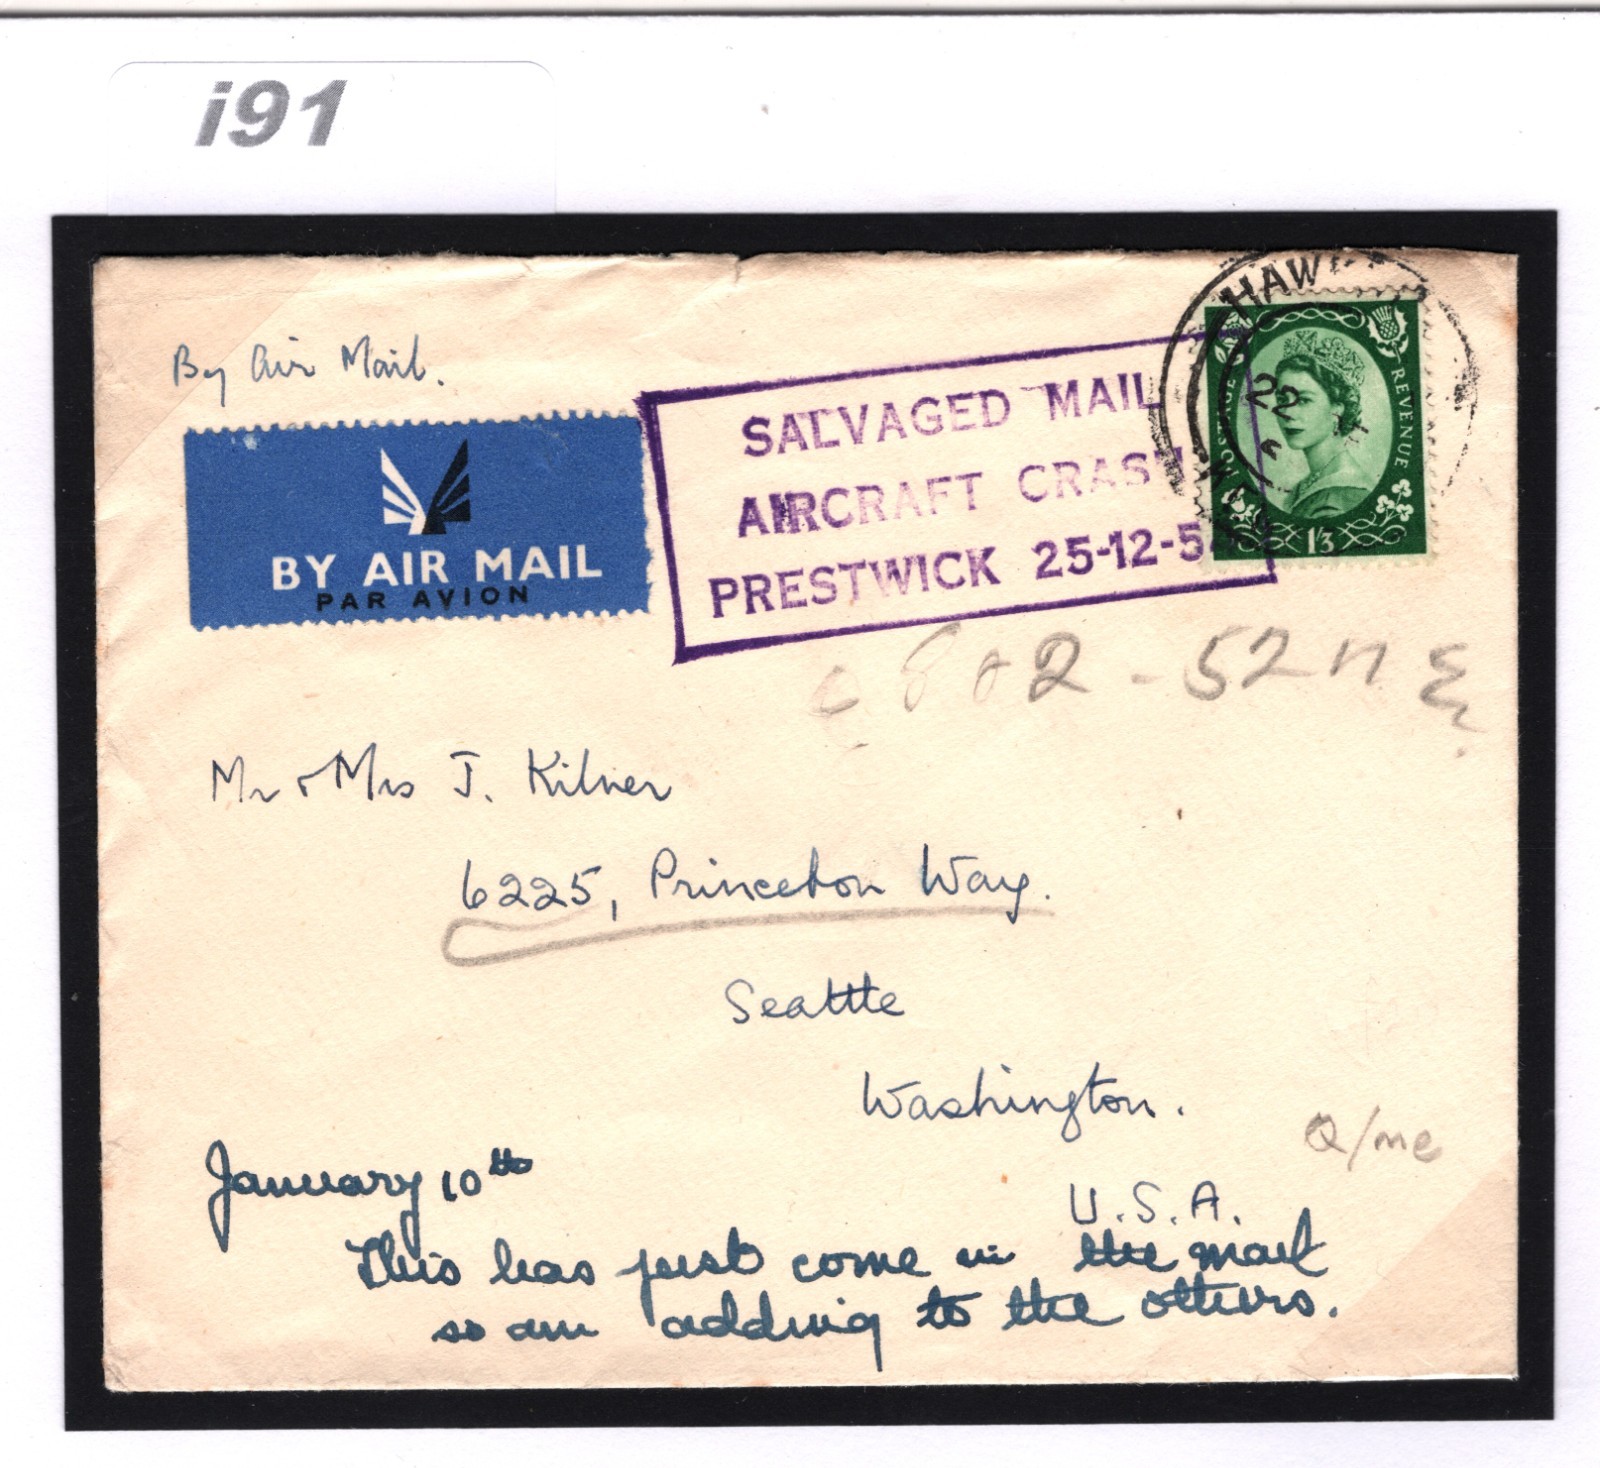 i91
By Air Mail.
BY AIR MAIL
PAR AVION
SALVAGED MAIL
AIRCRAFT CRASH
PRESTWICK 25-12-5
HAW
22
POSTAGE
REVENUE
1/3
802-52nE
Mr & Mrs J. Kilner
6225, Princeton Way.
Seattle
Washington.
U.S.A.
Q/me
January 10th
This has just come in the mail
so am adding to the others.